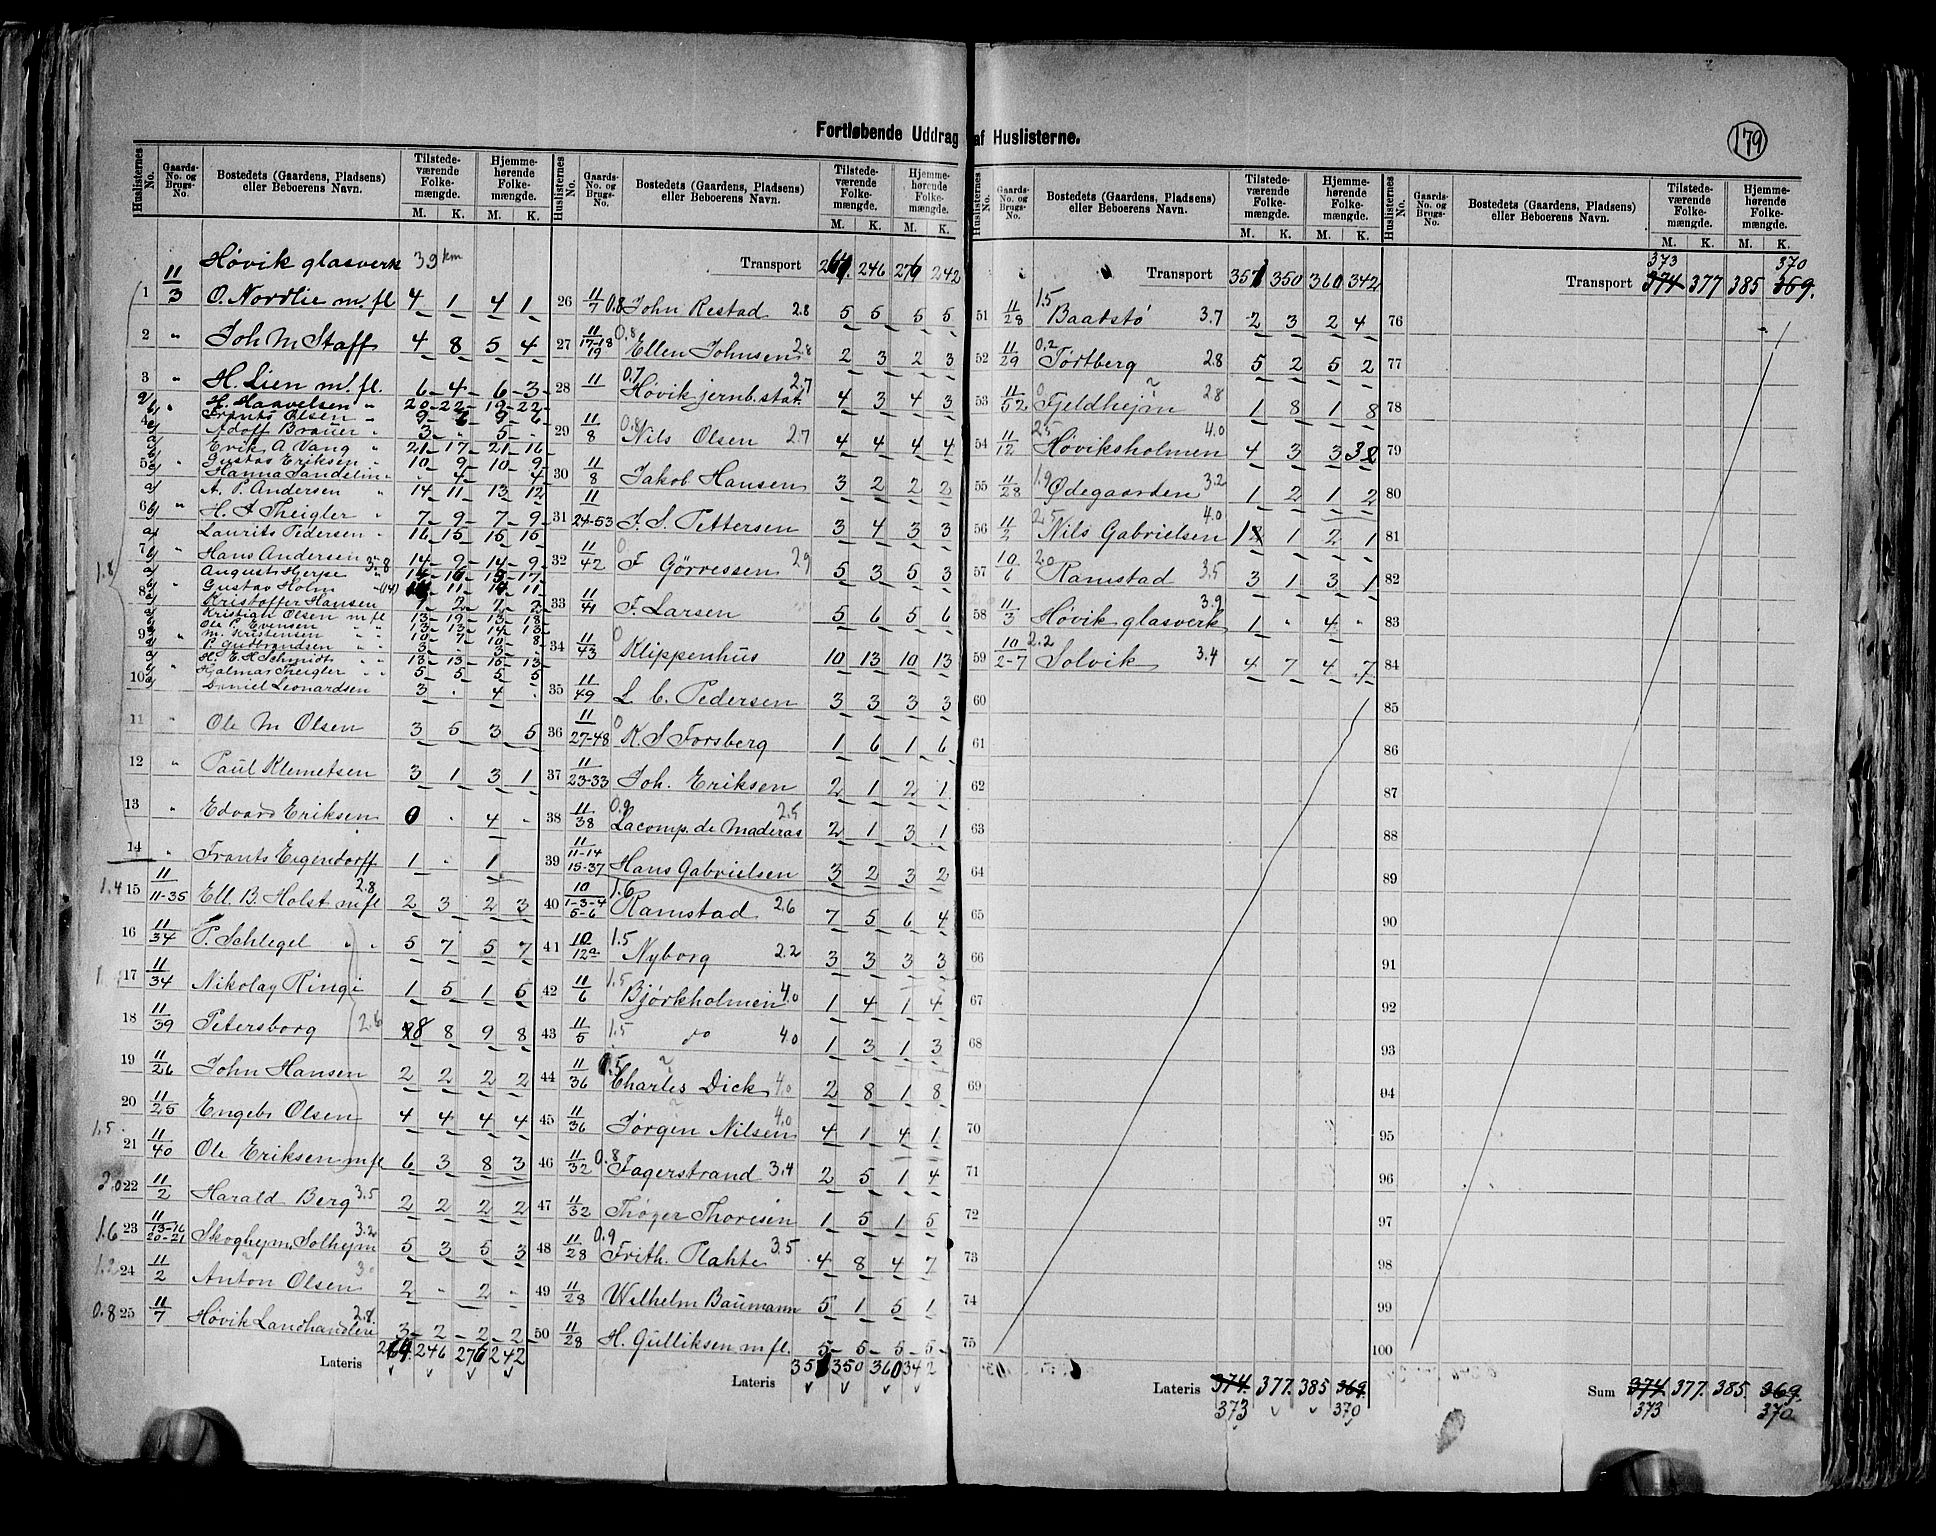 Fortløbende Uddrag af Huslisterne.
179
Huslisternes No. Gaards-No. og Brugs-No. Bostedets (Gaardens, Pladsens) eller Beboerens Navn. Tilstedeværende Folkemængde. M. K. Hjemmehørende Folkemængde. M. K.
Høvik glasverk 39 km
1 11/3 O. Nordlie m. fl 4 1 4 1
2 " Joh M Staff 4 8 5 4
3 " H. Lien m. fl. 6 4 6 3
H. Haavelsen " 20 22 19 22
Frants Olsen
4 Adolf Brauer
Erik A. Vang " 21 17 21 16
5 Gustav Eriksen 10 9 10 9
Hanna Sandelin
A. P. Andersen " 14 11 13 12
6 " H. F Theigler " 7 9 7 9
Laurits Pedersen " 16 15 15 15
7 Hans Andersen 14 9 14 9
August Herpe
8 Gustav Holm
Kristoffer Hansen 1 2 1 2
Kristian Olsen m fl 13 19 13 18
Ole P. Evensen
9 " M. Kristensen
P. Gudbrandsen
H. E. H Schmidt " 13 13 15 13
10 Hjalmar Theigler 5 5 5 5
Daniel Leonardsen 3 . 4 .
11 " Ole M Olsen 3 5 3 5
12 " Paul Klemetsen 3 1 3 1
13 " Edvard Eriksen 0 . 4 .
14 " Frants Eigendorff 1 . 1
1.4 15 11/11-35 Ell B. Holst m fl 2.8 2 3 2 3
16 11/34 P. Schlegel " " 5 7 5 7
17 11/34 Nikolay Ringi 1 5 1 5
18 11/39 Petersborg 2.6 8 8 9 8
19 11/26 John Hansen 2 2 2 2
20 11/25 Engebr Olsen 4 4 4 4
1.5
21 11/40 Ole Eriksen m fl 6 3 8 3
2.0 22 11/2 Harald Berg 3.5 2 2 2 2
1.6 23 11/13-16 20-21 Skoghejm, Solhejm 3.2 5 3 5 3
1.2 24 11/2 Anton Olsen 3.0 2 . 2 .
0.8 25 11/7 Høvik Landhandleri 2.8. 3 2 2 2
Lateris 264 246 276 242
Huslisternes No. Gaards-No. og Brugs-No. Bostedets (Gaardens, Pladsens) eller Beboerens Navn. Tilstedeværende Folkemængde. M. K. Hjemmehørende Folkemængde. M. K.
Transport 264 246 276 242
26 11/7 0.8 John Restad 2.8 5 5 5 5
27 11/17-18 19 0.8 Ellen Johnsen 2.8 2 3 2 3
28 11 0.7 Høvik jernb. stat. 2.7 4 3 4 3
29 11/8 0.8 Nils Olsen 2.7 4 4 4 4
30 11/8 Jakob Hansen 3 2 2 2
31 11/24-53 J. S. Pettersen 3 4 3 3
32 11/42 0 F Gørressen 2.9 5 3 5 3
33 11/41 F. Larsen 5 6 5 6
34 11/43 0 Klippenhus 10 13 10 13
35 11/49 L C. Pedersen 3 3 3 3
36 11/27-48 0 K. S Forsberg 1 6 1 6
37 11/23-33 Joh. Eriksen 2 1 2 1
38 11/38 0.9 Lacomp. de Maderas 2.5 2 1 3 1
39 11/11-14 15-37 Hans Gabrielsen 3 2 3 2
40 10/1-3-4 5-6 1.6 Ramstad 2.6 7 5 6 4
41 10/12a 1.5 Nyborg 2.2 3 3 3 3
42 11/6 1.5 Bjørkholmen 4.0 1 4 1 4
43 11/5 1.5 do 4.0 1 3 1 3
44 11/36 Charles Dick 4.0 2 8 1 8
45 11/36 Jørgen Nilsen 4.0 4 1 4 1
46 11/32 0.8 Fagerstrand 3.4 2 5 1 4
47 11/32 Thøger Thoresen 1 5 1 5
48 11/28 0.9 Frith. Plahte 3.5 4 8 4 7
49 11/28 Wilhelm Baumann 5 1 5 1
50 11/28 H. Gulliksen m fl. 5 5 5 5
Lateris 351 350 360 342
Huslisternes No. Gaards-No. og Brugs-No. Bostedets (Gaardens, Pladsens) eller Beboerens Navn. Tilstedeværende Folkemængde. M. K. Hjemmehørende Folkemængde. M. K.
Transport 351 350 360 342
51 11/28 1.5 Baatstø 3.7 2 3 2 4
52 11/29 0.2 Tørtberg 2.8 5 2 5 2
53 11/52 0 Fjeldhejm 2.8 1 8 1 8
54 11/12 2.5 Høviksholmen 4.0 4 3 3 2
55 11/28 1.9 Ødegaarden 3.2 1 2 1 2
56 11/2 2.5 Nils Gabrielsen 4.0 1 1 2 1
57 10/6 2.0 Ramstad 3.5 3 1 3 1
58 11/3 Høvik glasverk 3.9 1 " 4 "
59 10/2-7 2.2 Solvik 3.4 4 7 4 7
60
61
62
63
64
65
66
67
68
69
70
71
72
73
74
75
Lateris 374. 377. 385 369.
373 370
Huslisternes No. Gaards-No. og Brugs-No. Bostedets (Gaardens, Pladsens) eller Beboerens Navn. Tilstedeværende Folkemængde. M. K. Hjemmehørende Folkemængde. M. K.
373 370
Transport 374 377 385 369.
76
77
78
79
80
81
82
83
84
85
86
87
88
89
90
91
92
93
94
95
96
97
98
99
100
Sum 374. 377. 385. 369.
373 370